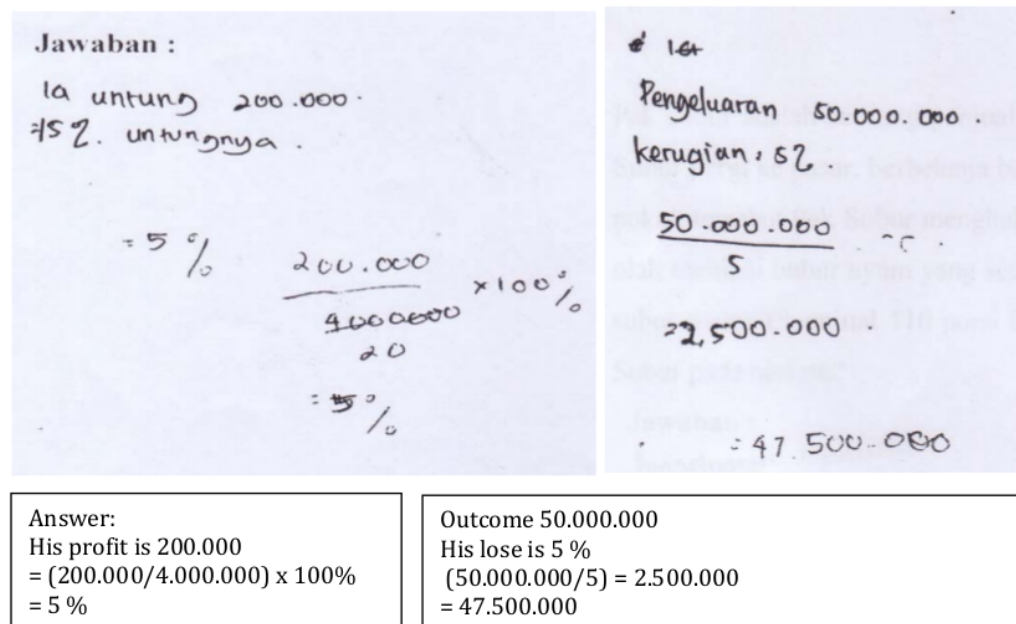 Jawaban :
Ia untung 200.000.
= 5 %. untungnya.
= 5 %
200.000
4000000
x 100 %
20
= 5 %
Pengeluaran 50.000.000
kerugian . 5 %
50.000.000
5
= 2,500.000
= 47.500.000
Answer:
His profit is 200.000
= (200.000/4.000.000) x 100%
= 5 %
Outcome 50.000.000
His lose is 5 %
(50.000.000/5) = 2.500.000
= 47.500.000